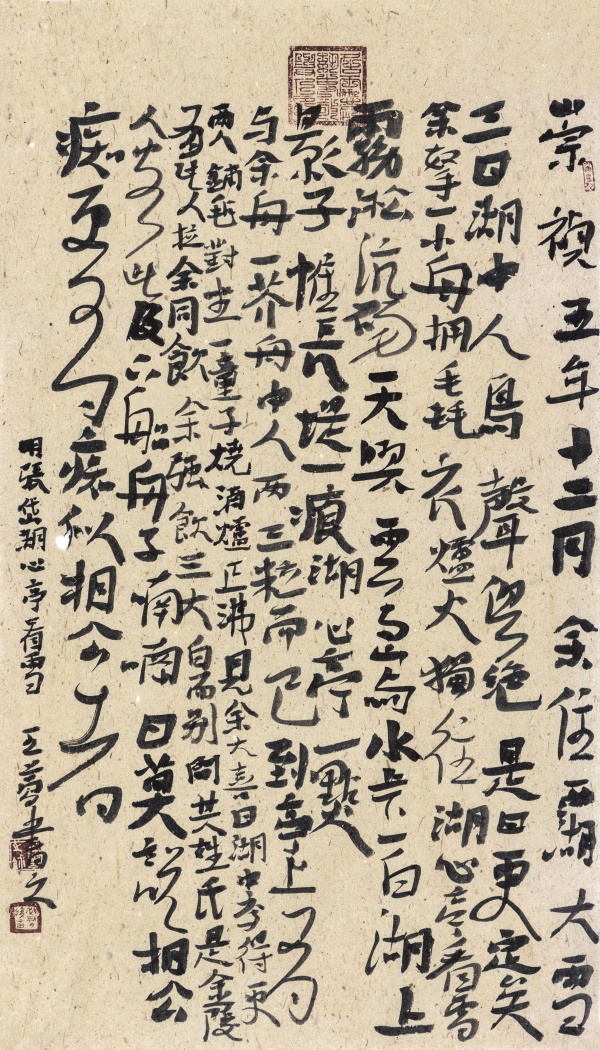 崇禎五年十二月余住西湖大雪
三日湖中人鳥聲俱絶是日更定矣
余拏一小舟拥毛毳衣爐火獨往湖心亭看雪
霧淞沆碭天與雲与山与水上下一白湖上
影子惟長堤一痕湖心亭一點
与余舟一芥舟中人兩三粒而已到亭上有
兩人鋪毡對坐一童子燒酒爐正沸見余大喜曰湖中焉得更
有此人拉余同飲余强飲三大白而别問其姓氏是金陵
人客此及下船舟子喃喃曰莫説相公
痴更有痴似相公者
明張岱湖心亭看雪 王夢書